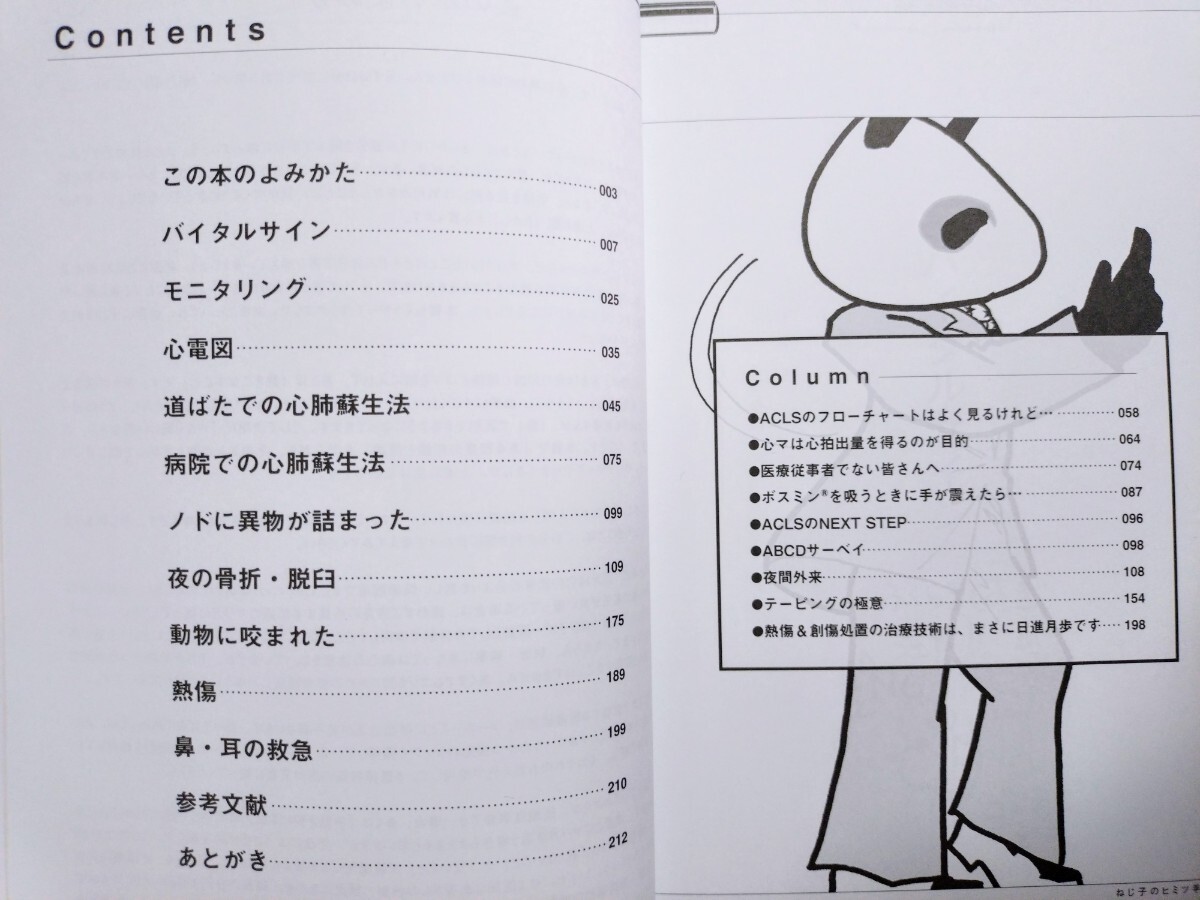 Contents
この本のよみかた 003
バイタルサイン 007
モニタリング 025
心電図 035
道ばたでの心肺蘇生法 045
病院での心肺蘇生法 075
ノドに異物が詰まった 099
夜の骨折・脱臼 109
動物に咬まれた 175
熱傷 189
鼻・耳の救急 199
参考文献 210
あとがき 212
Column
●ACLSのフローチャートはよく見るけれど… 058
●心マは心拍出量を得るのが目的 064
●医療従事者でない皆さんへ 074
●ボスミン®を吸うときに手が震えたら… 087
●ACLSのNEXT STEP 096
●ABCDサーベイ 098
●夜間外来 108
●テーピングの極意 154
●熱傷＆創傷処置の治療技術は、まさに日進月歩です 198
ねじ子のヒミツ手